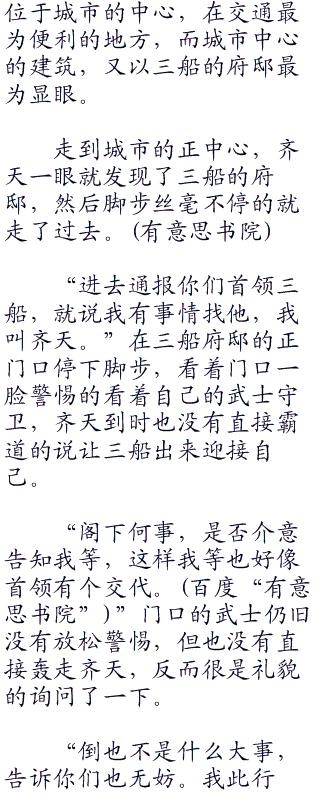 位于城市的中心，在交通最
为便利的地方，而城市中心
的建筑，又以三船的府邸最
为显眼。
走到城市的正中心，齐
天一眼就发现了三船的府
邸，然后脚步丝毫不停的就
走了过去。(有意思书院)
“进去通报你们首领三
船，就说我有事情找他，我
叫齐天。”在三船府邸的正
门口停下脚步，看着门口一
脸警惕的看着自己的武士守
卫，齐天到时也没有直接霸
道的说让三船出来迎接自
己。
“阁下何事，是否介意
告知我等，这样我等也好像
首领有个交代。(百度“有意
思书院”)”门口的武士仍旧
没有放松警惕，但也没有直
接轰走齐天，反而很是礼貌
的询问了一下。
“倒也不是什么大事，
告诉你们也无妨。我此行